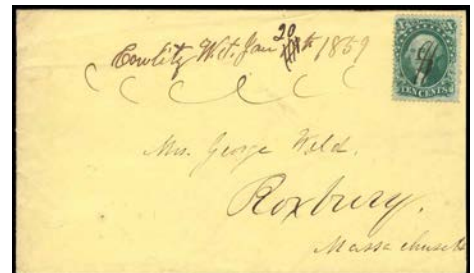 20
Cowlitz W.T. Jan th 1859
TEN CENTS
Mrs. George Weld.
Roxbury.
Massachusetts